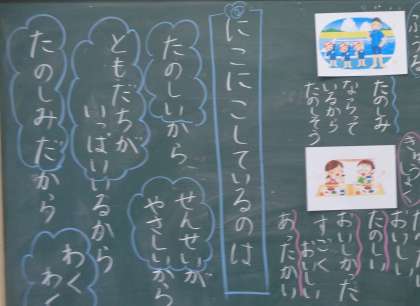 たのしい
おいしい
きゅうしょく
おいしかった
すごく おいしい
あったかい
たのしみ
ならって
いるから
たのしそう
⑤
にこにこしているのは
たのしいから
せんせいが
やさしいから
ともだちが
いっぱいいるから
たのしみだから
わく
わく